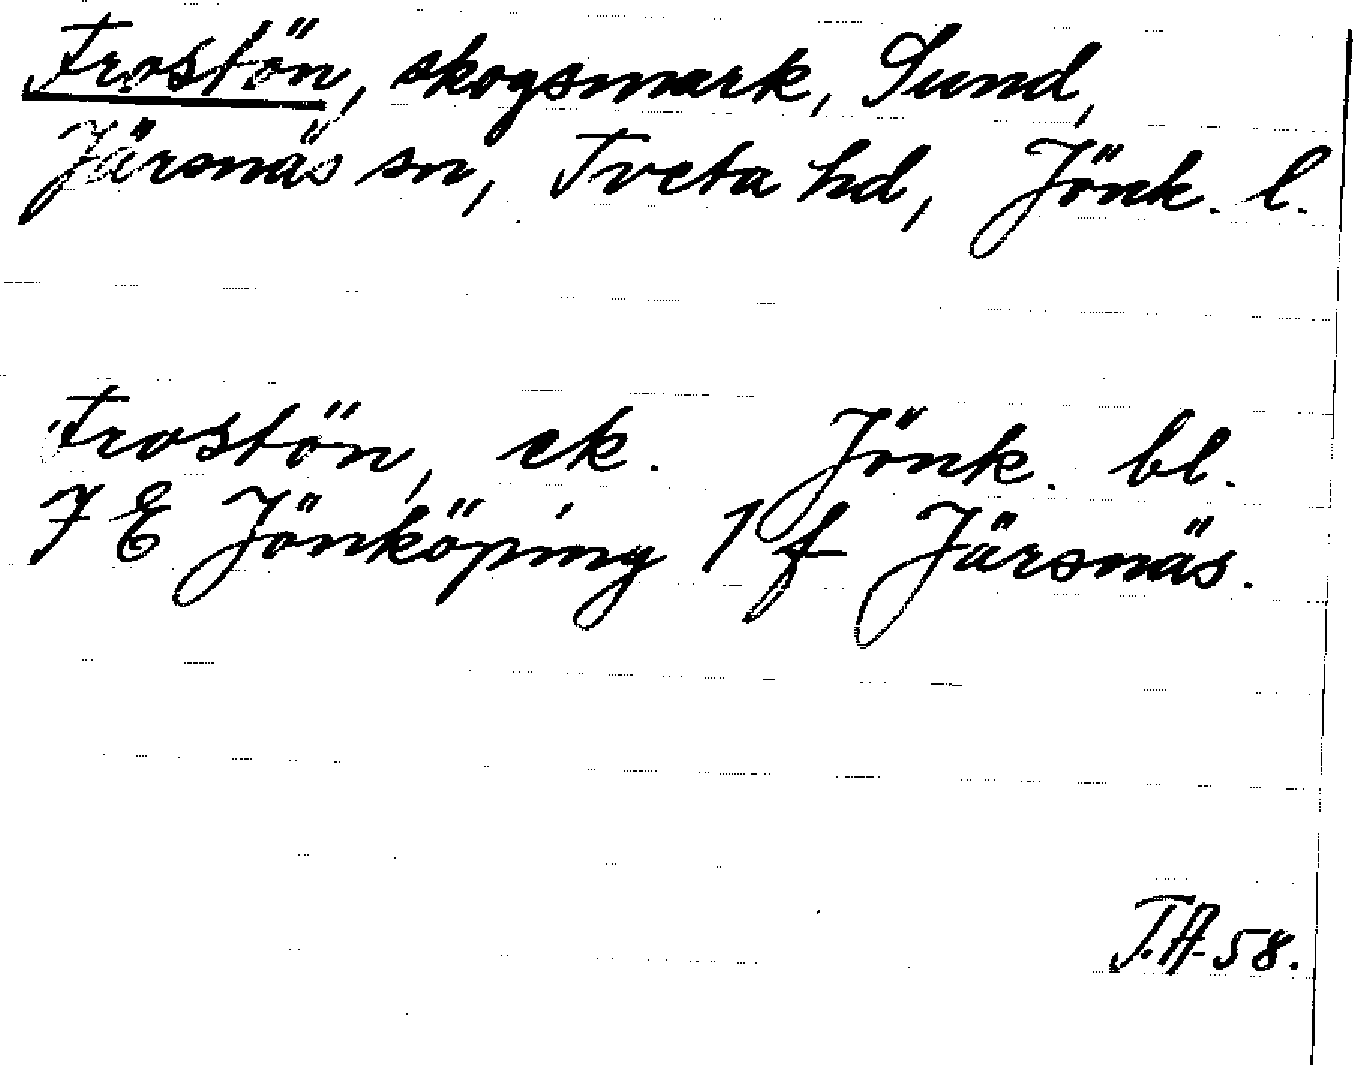 Frostön, skogsmark, Sund,
Järsnäs sn, Tveta hd, Jönk. l.
Frostön, ek. Jönk. bl.
7 E Jönköping 1 f Järsnäs.
T.A-58.